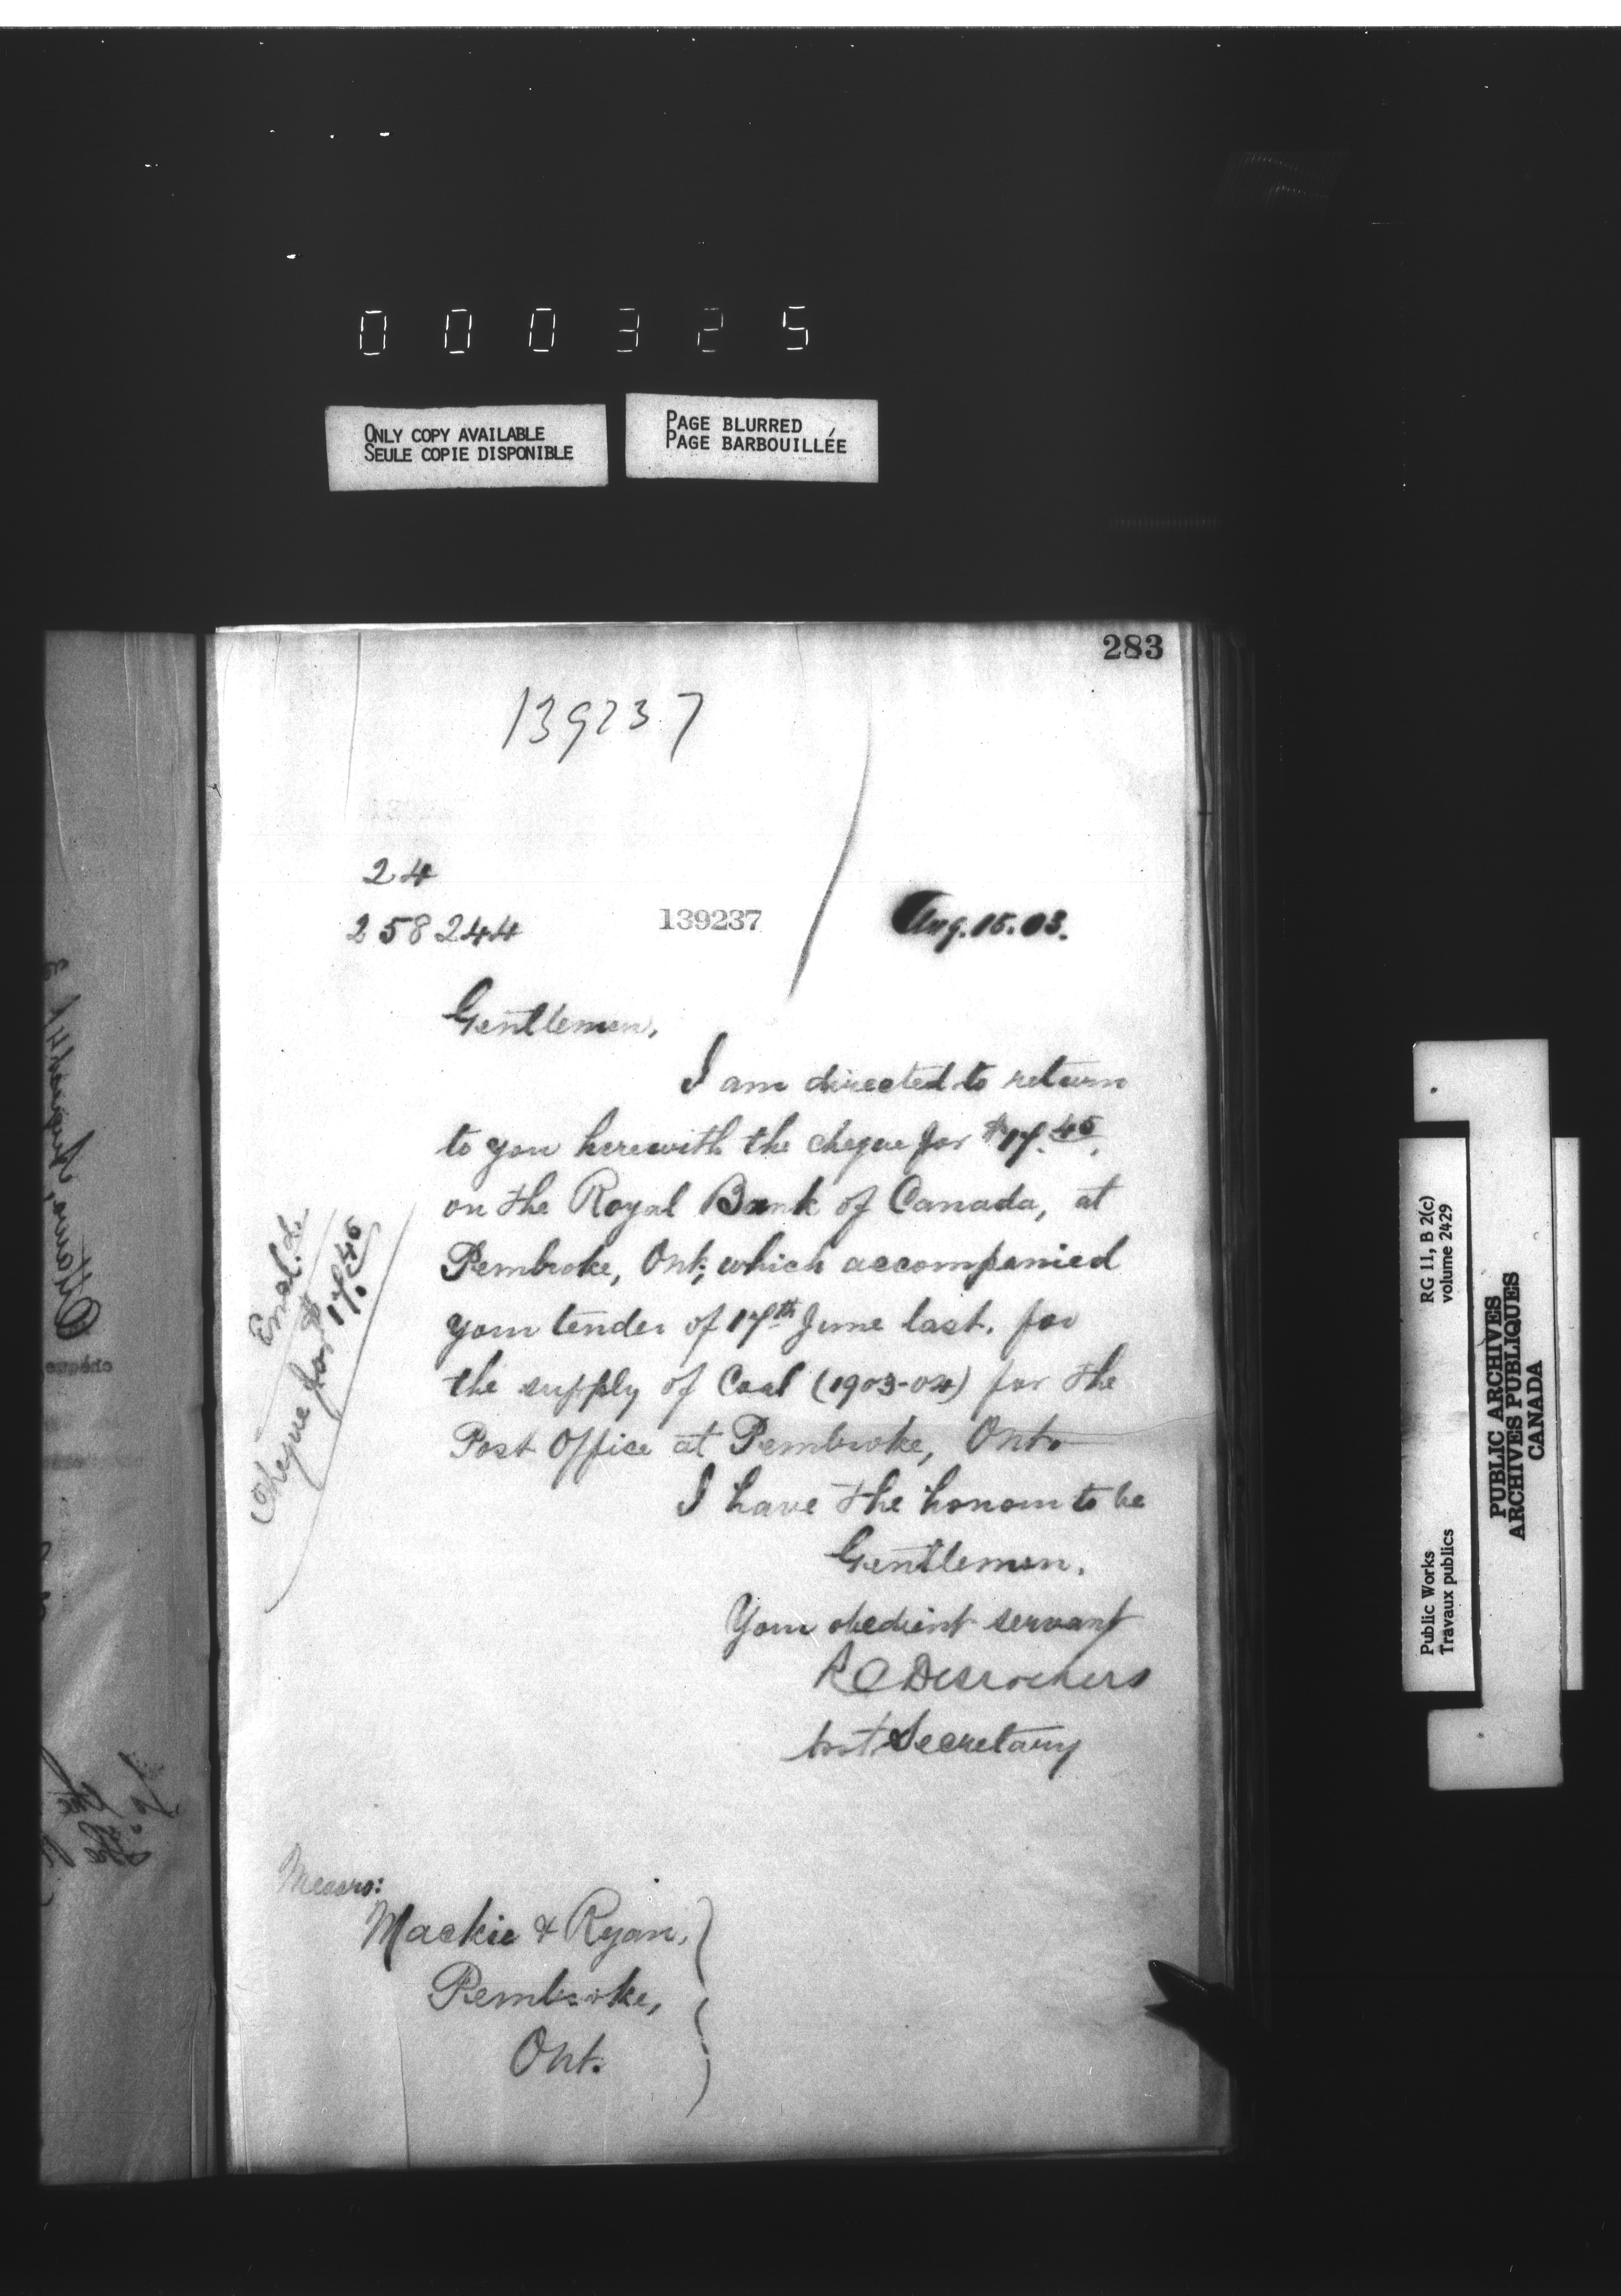 000325
ONLY COPY AVAILABLE
SEULE COPIE DISPONIBLE
PAGE BLURRED
PAGE BARBOUILLÉE
283
139237
24
258244
139237
Aug. 15. 03.
Gentlemen,
I am directed to return
to you herewith the cheque for $17.45,
on the Royal Bank of Canada, at
Pembroke, Ont; which accompanied
your tender of 17th June last. for
the supply of Coal (1903-04) for the
Post Office at Pembroke, Ont.
I have the honour to be
Gentlemen,
Your obedient servant
R C Desrochers
Asst. Secretary
Encl. de
Cheque for $17.45
Messrs:
Mackie & Ryan,
Pembroke,
Ont.
RG 11, B 2(c)
volume 2429
Public Works
Travaux publics
PUBLIC ARCHIVES
ARCHIVES PUBLIQUES
CANADA